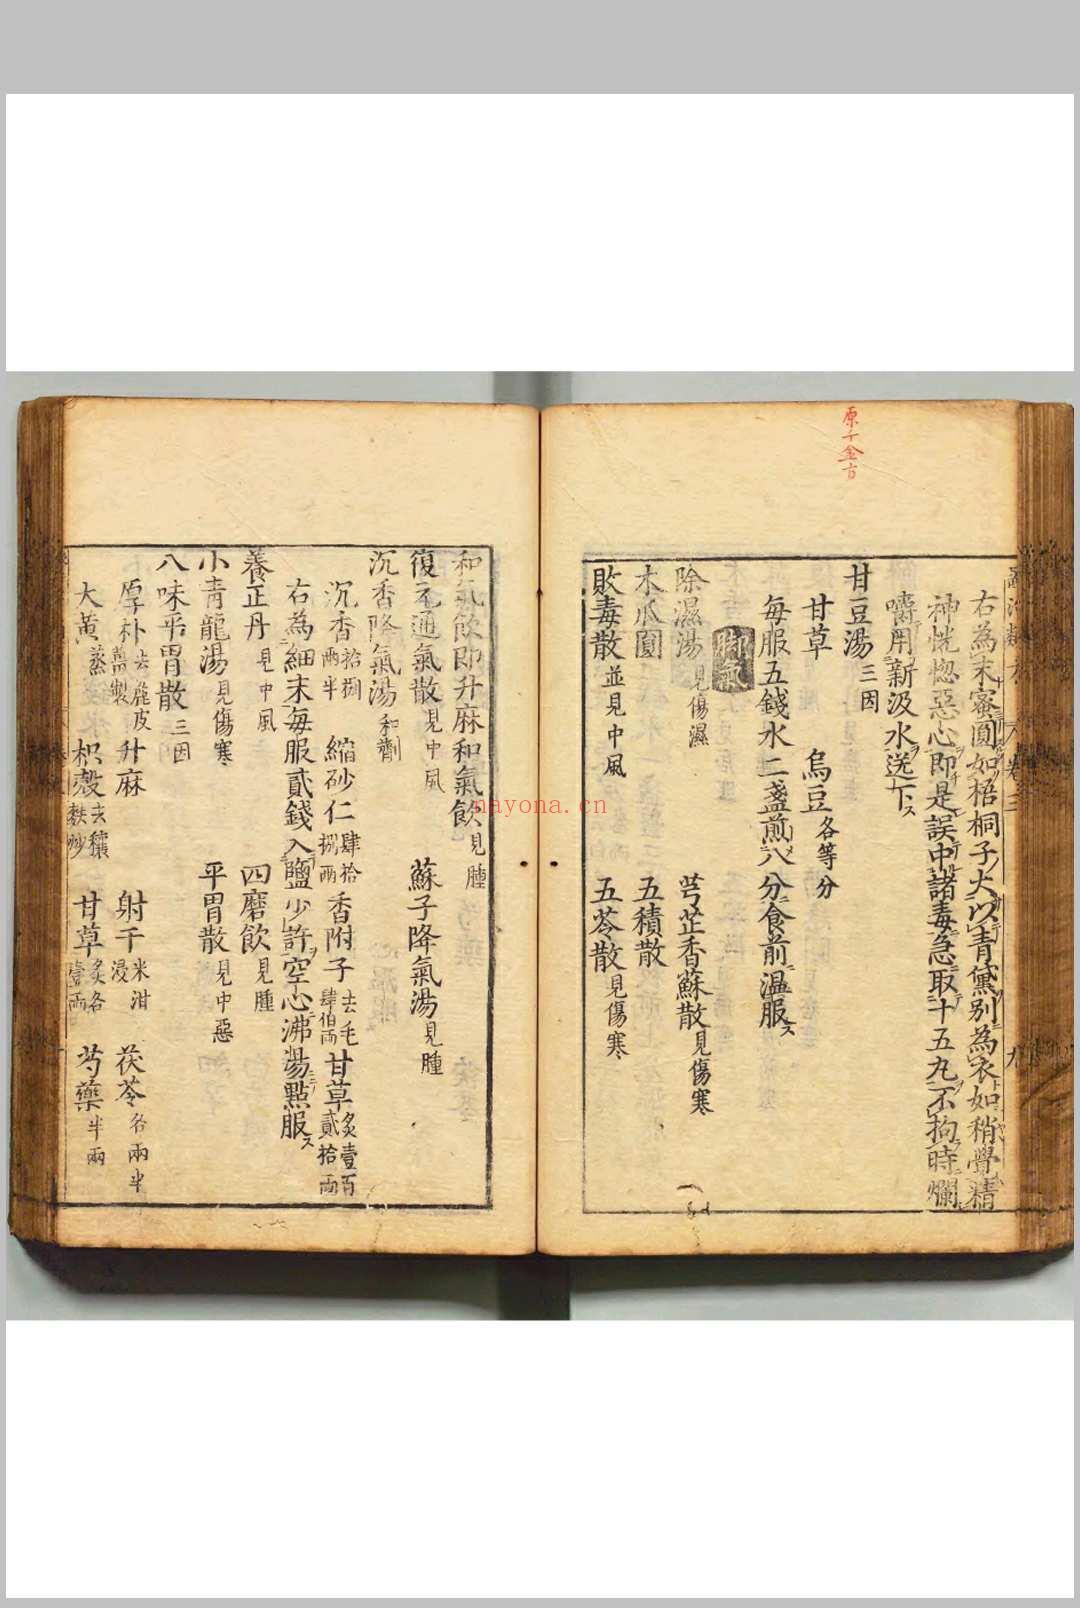 原千金方
右為末蜜圓如梧桐子大以青黛別為衣如稍覺精
神恍惚惡心即是誤中諸毒急取十五丸不拘時爛
嚼用新汲水送下ス
甘豆湯三因
甘草 烏豆各等分
每服五錢水二盞煎八分食前溫服ス
脚氣
除濕湯見傷濕 芎芷香蘇散見傷寒
木瓜圓 五積散
敗毒散並見中風 五苓散見傷寒
和氣飲即升麻和氣飲見腫
復元通氣散見中風 蘇子降氣湯見腫
沉香降氣湯和劑
沉香拾捌兩半 縮砂仁肆拾捌兩 香附子去毛肆伯兩 甘草炙壹百貳拾兩
右為細末每服貳錢入鹽少許空心沸湯點服ス
養正丹見中風 四磨飲見腫
小青龍湯見傷寒 平胃散見中惡
八味平胃散三因
厚朴去麁皮薑製 升麻 射干米泔浸 茯苓各兩半
大黃蒸 枳殼去穰麩炒 甘草炙各壹兩 芍藥半兩
nayona.cn